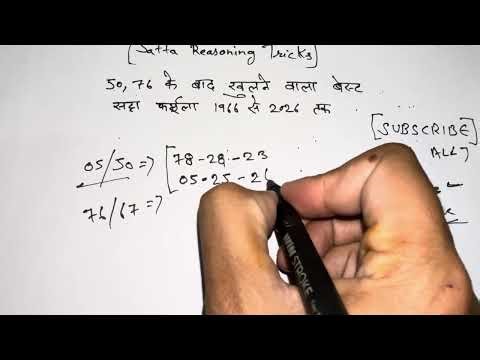 [Satta Reasoning Tricks]
50, 76 के बाद खुलने वाला बेस्ट
सट्टा फर्मूला 1966 से 2026 तक
[SUBSCRIBE]
05/50 => [78-28-23
05-25-2
76/67 =>